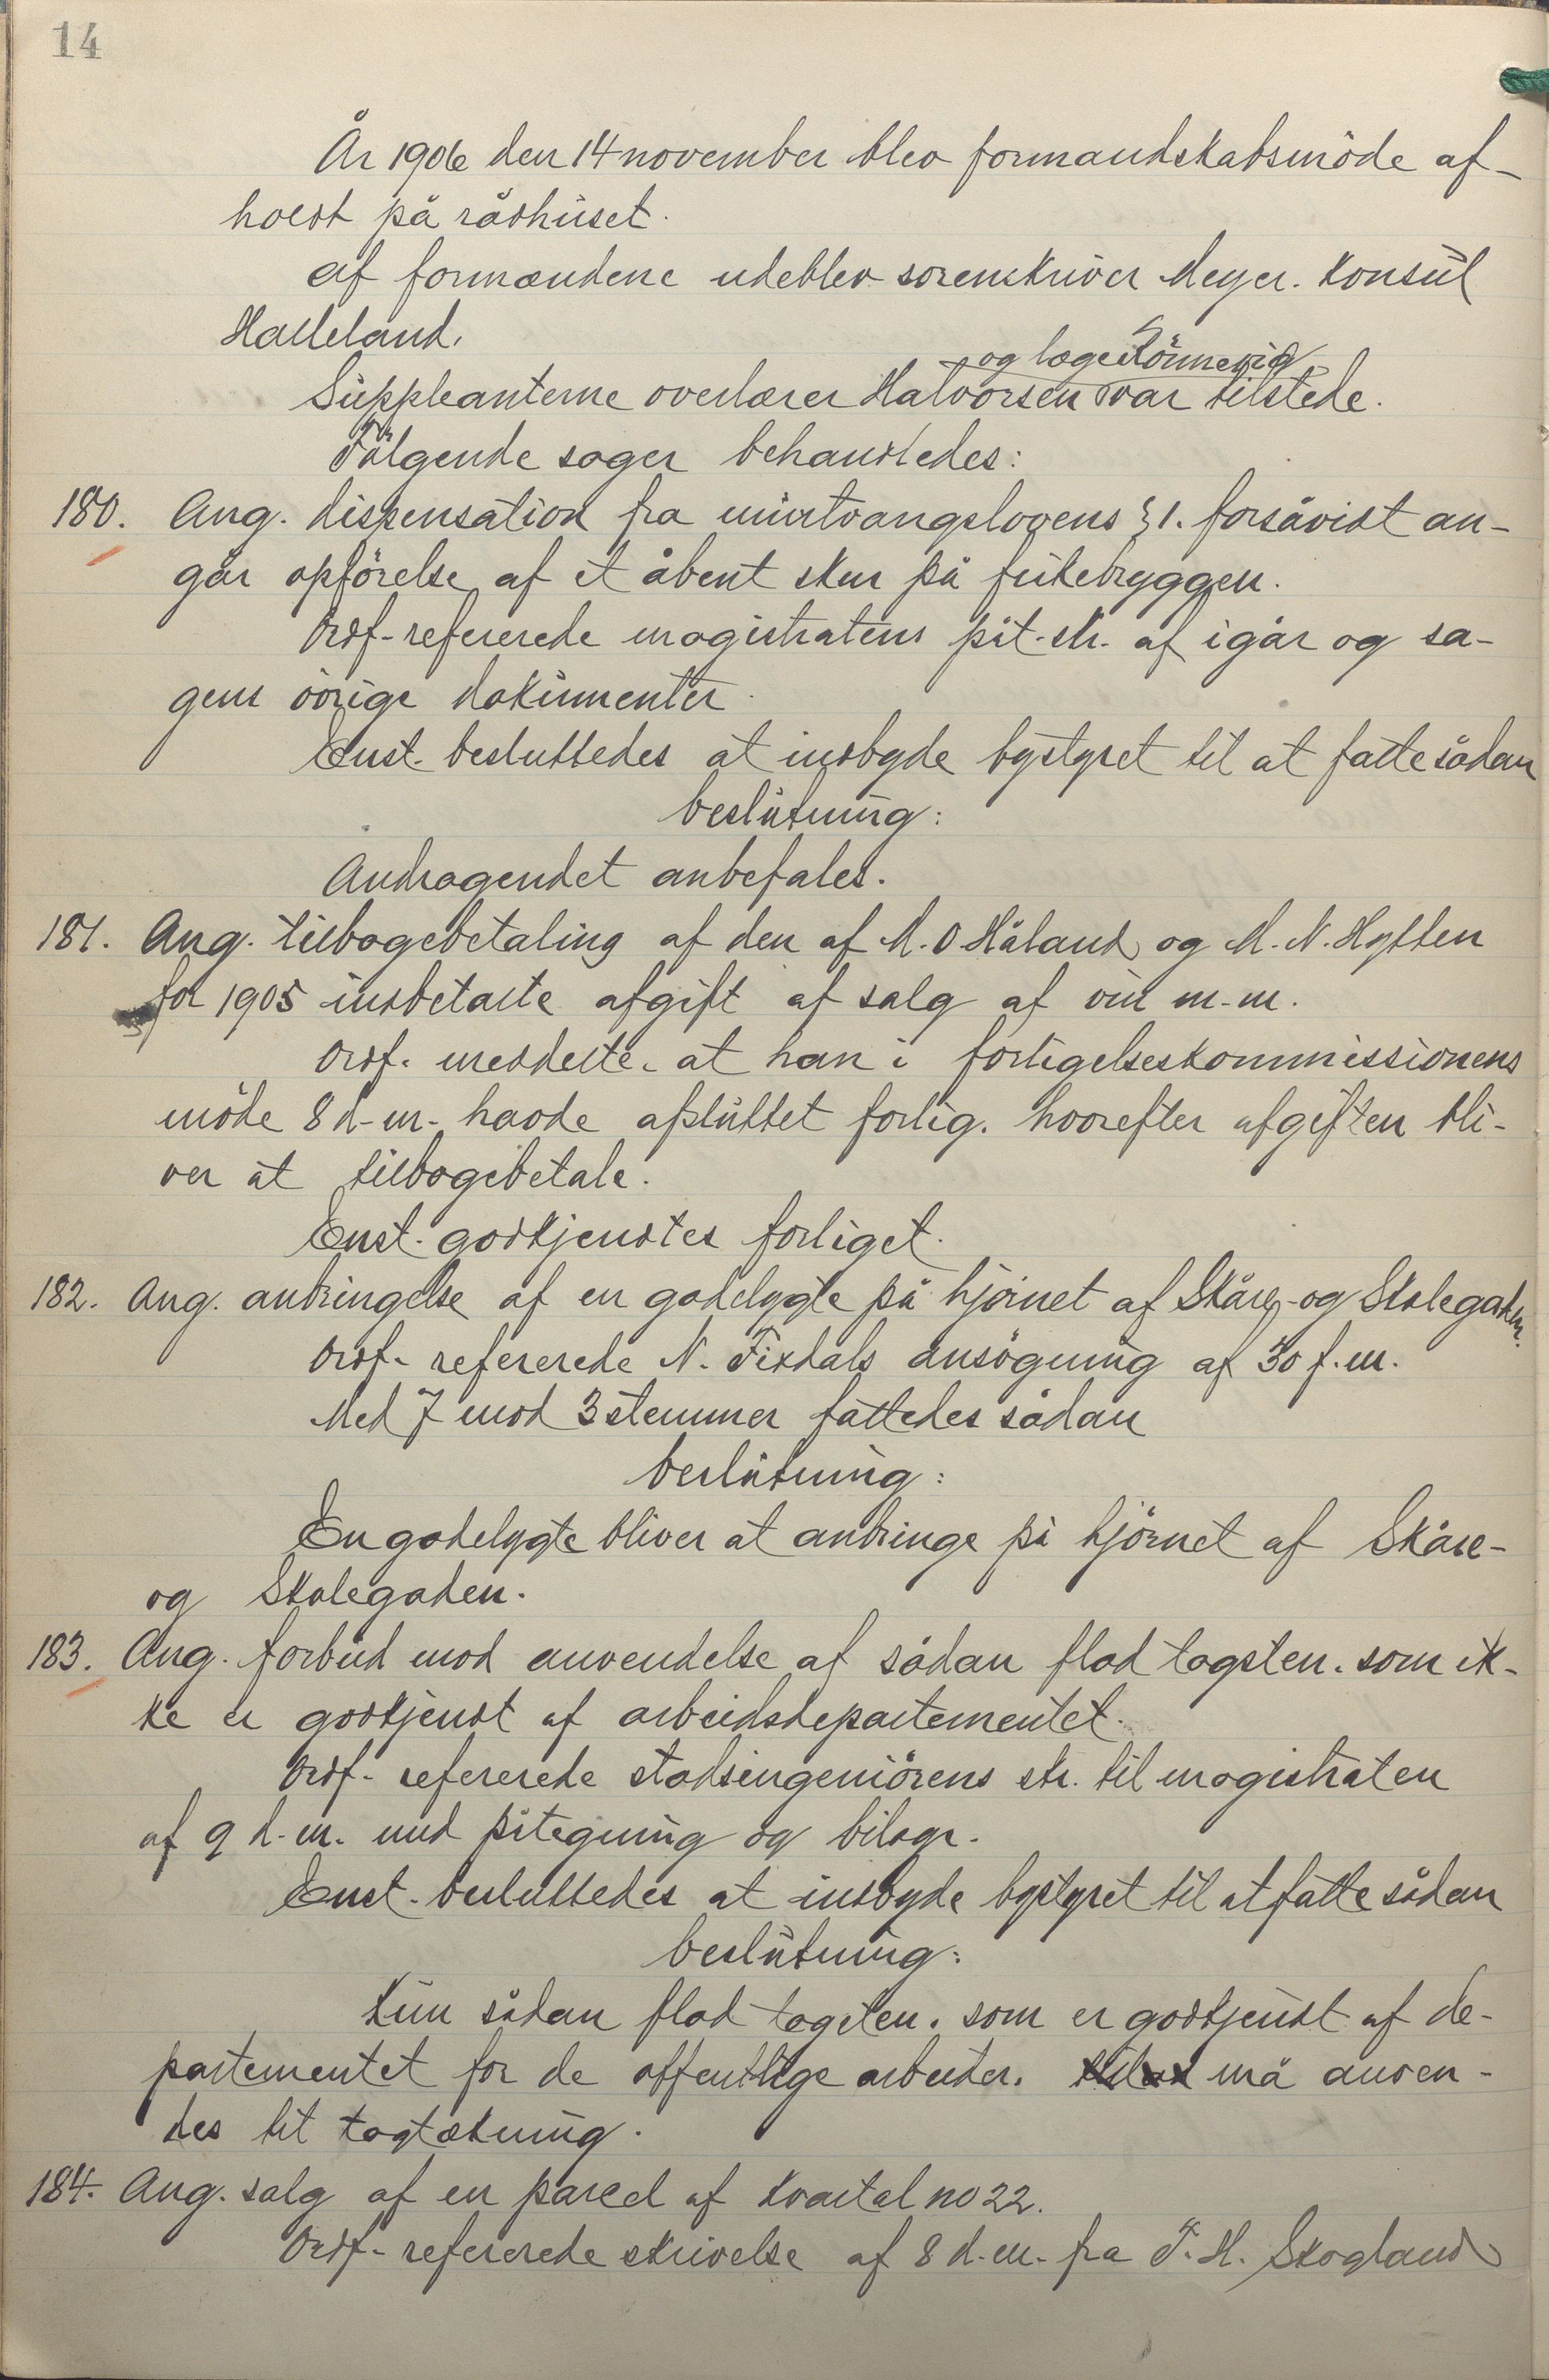 14
År 1906 den 14 november blev formandskabsmöde af-
holdt på rådhuset.
af formændene udeblev sorenskriver Meyer. konsul
Halleland.
og læge Sönnevig
Suppleanterne overlærer Halvorsen var tilstede.
Fölgende sager behandledes:
180. Ang. dispensation fra murtvangslovens § 1. forsåvidt an-
går opförelse af et åbent skur på feitebryggen.
Ordf. refererede magistratens påt. skr. af igår og sa-
gens övrige dokumenter.
Enst. besluttedes at indbyde bystyret til at fatte sådan
beslutning:
Andragendet anbefales.
181. Ang. tilbagebetaling af den af M. O Håland og M. N. Hytten
for 1905 indbetalte afgift af salg af vin m.m.
Ordf. meddelte. at han i forligelseskommissionens
möde 8 d.m. havde afsluttet forlig. hvorefter afgiften bli-
ver at tilbagebetale.
Enst. godkjendtes forliget.
182. Ang. anbringelse af en gadelygte på hjörnet af Skåre- og Skolegaden.
Ordf. refererede N. Fixdals ansögning af 30 f.m.
Med 7 mod 3 stemmer fattedes sådan
beslutning:
En gadelygte bliver at anbringe på hjörnet af Skåre-
og Skolegaden.
183. Ang. forbud mod anvendelse af sådan flad tagsten. som ik-
ke er godkjendt af arbeidsdepartementet.
Ordf. refererede stadsingeniörens skr. til magistraten
af 9 d.m. med påtegning og bilage.
Enst. besluttedes at indbyde bystyret til at fatte sådan
beslutning:
Kun sådan flad tagsten. som er godkjendt af de-
partementet for de offentlige arbeider. må anven-
des til tagtækning.
184. Ang. salg af en parcel af kvartal no 22.
Ordf. refererede skrivelse af 8 d.m. fra T. H. Skogland